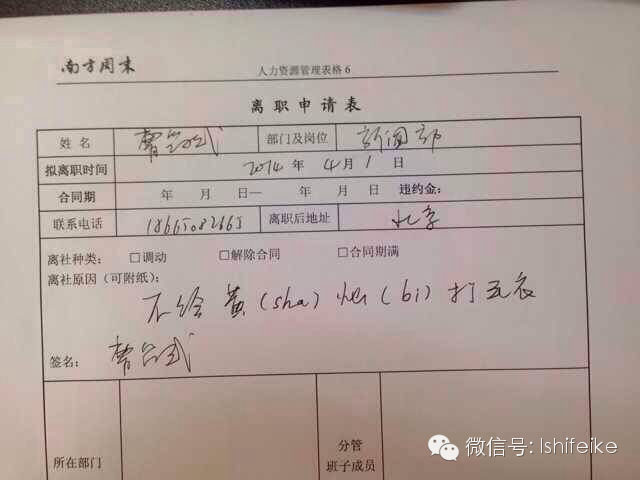 南方周末 人力资源管理表格 6
离职申请表
姓名 部门及岗位 新闻部
拟离职时间 2014 年 4 月 1 日
合同期 年 月 日— 年 月 日 违约金:
联系电话 离职后地址 北京
离社种类: □调动 □解除合同 □合同期满
离社原因（可附纸）:
不给黄(sha)灿(bi)打瓦衣
签名:
所在部门 分管
班子成员
微信号: lshifeike